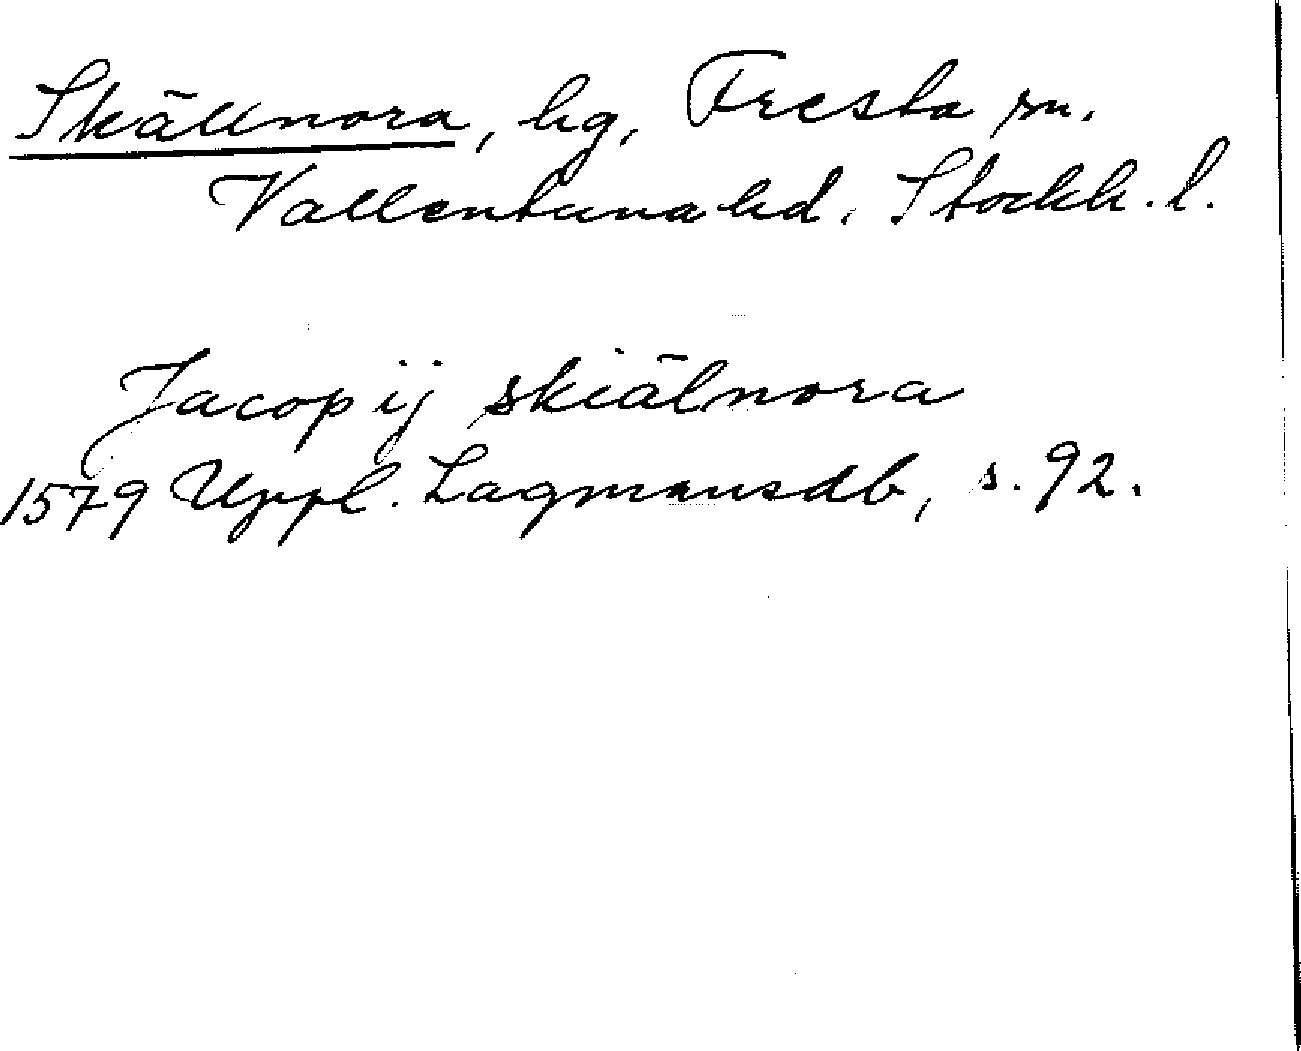 Skällnora, hg, Fresta sn.
Vallentuna hd. Stockh. l.
Jacop ij skiälnora
1579 Uppl. Lagmansdb, s. 92.